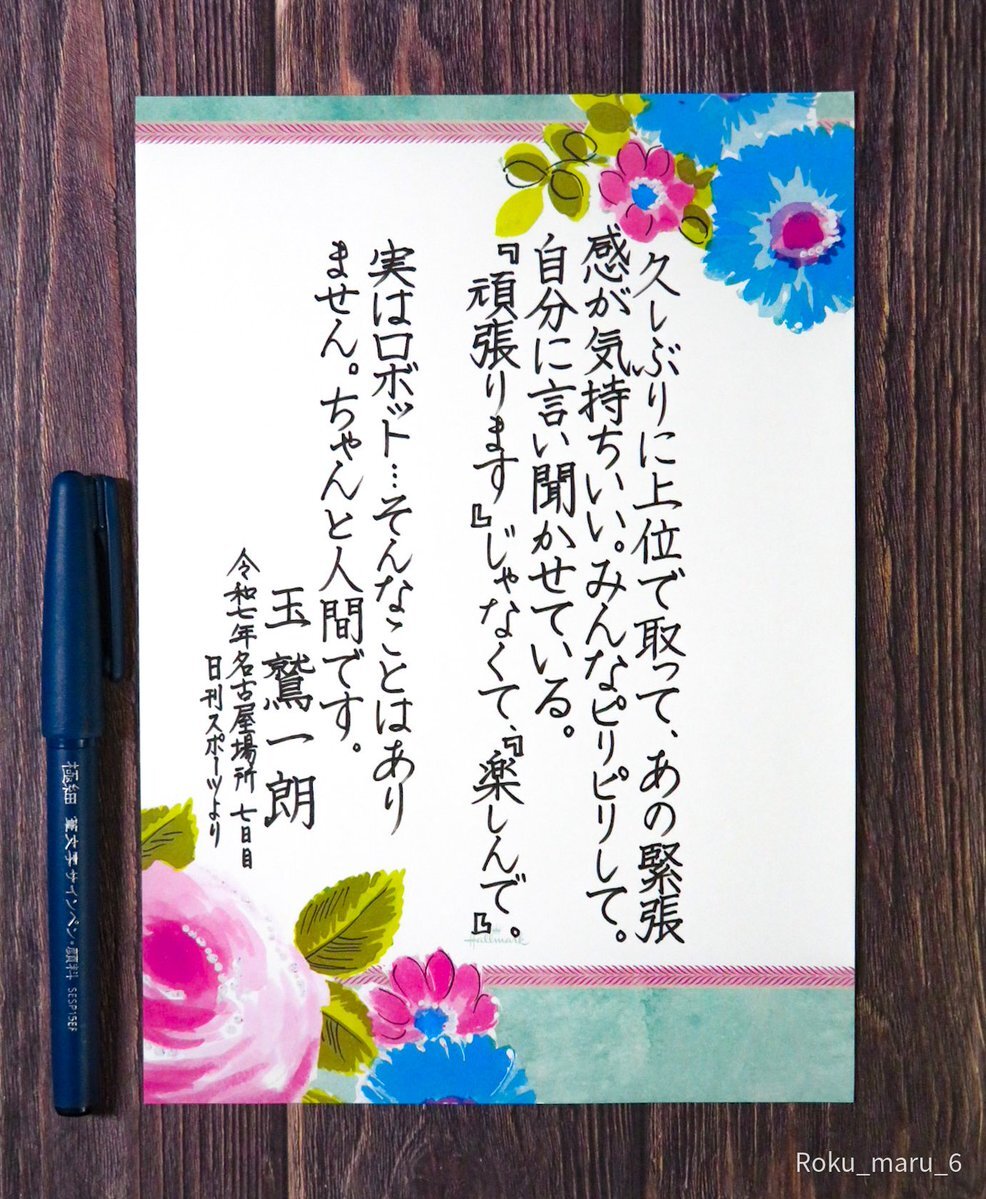 久しぶりに上位で取って、あの緊張
感が気持ちいい。みんなピリピリして。
自分に言い聞かせている。
『頑張ります』じゃなくて、『楽しんで。』。
実はロボット…そんなことはあり
ません。ちゃんと人間です。
玉鷲一朗
令和七年名古屋場所 七日目
日刊スポーツより
Hallmark
極細 筆文字サインペン・顔料 SESP15EF
Roku_maru_6